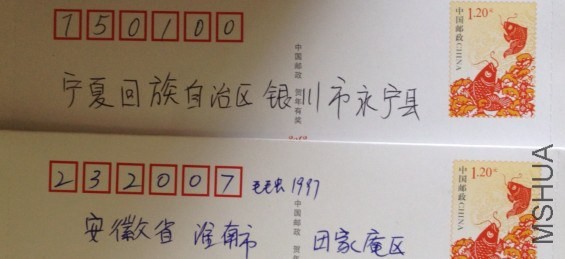 750100
1.20元
中国邮政 CHINA
中国邮政 贺年有奖
宁夏回族自治区银川市永宁县
232007 毛毛虫1987
1.20元
中国邮政 CHINA
中国邮政 贺
安徽省 淮南市 田家庵区
MSHUA